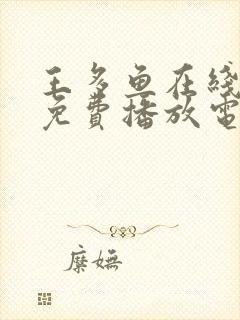 王多鱼在线
免費播放電
糜嫵